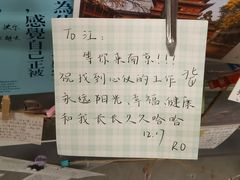 等你来南京!!!
祝找到心仪的工作
永远阳光、幸福、健康
和我长长久久哈哈
12.7
RO
感覺自己正被